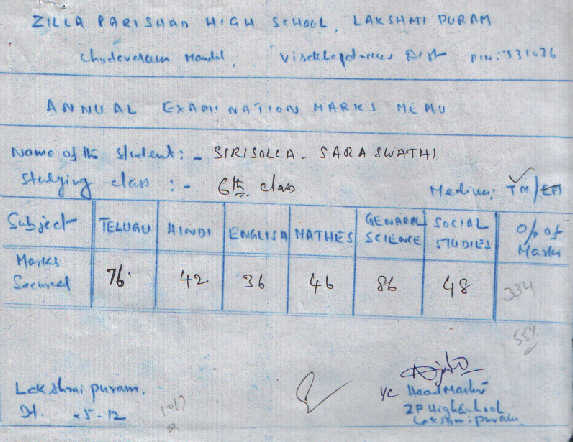 ZILLA PARISHAD HIGH SCHOOL, LAKSHMI PURAM
Chodavaram Mandal, Visakhapatnam Dist PIN: 531036
ANNUAL EXAMINATION MARKS MEMO
Name of the student: - SIRISOLLA. SARASWATHI
Studying class : - 6th class Medium: TM/EM
Subject TELUGU HINDI ENGLISH MATHES GENARAL SCIENCE SOCIAL STUDIES Marks
Marks Secured 76 42 36 46 86 48 334
55%
Lakshmi puram. Head Master
Dt. -5-12 ZP High School
Lakshmi puram